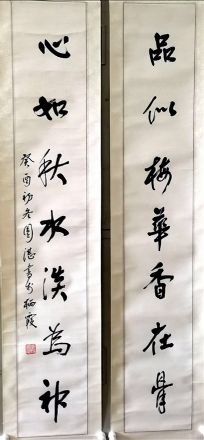 品似梅華香在骨
心如秋水淡為神
癸酉初冬周湛書於栖霞